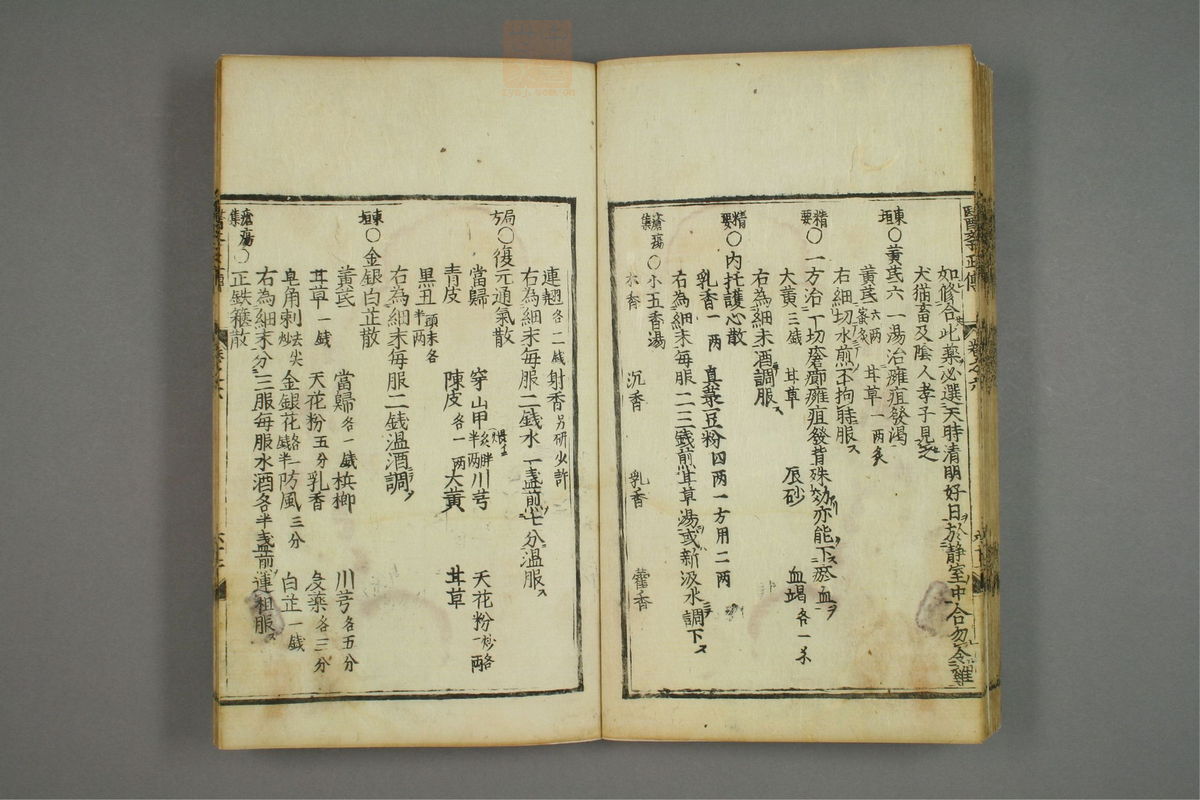 醫學正傳 卷之六
如修合此藥必選天時清明好日於静室中合勿令雞
犬猫畜及陰人孝子見之
東垣○黄芪六一湯治癰疽發渴
黄芪六两蜜炙 甘草一两炙
右細切水煎不拘時服
精要○一方治一切瘡癤癰疽發背殊効亦能下瘀血
大黄三錢 甘草 辰砂 血竭各一錢
右為細末酒調服
精要○内托護心散
乳香一两 真菉豆粉四两一方用二两
右為細末每服二三錢煎甘草湯或新汲水調下
瘡瘍集○小五香湯
木香 沉香 乳香 藿香
連翹各二錢 射香另研少許
右為細末每服二錢水一盞煎七分温服
局方○復元通氣散
當歸 穿山甲 川芎 天花粉
青皮 陳皮各一两 大黄 甘草
黒丑頭末各半两
右為細末每服二錢温酒調
東垣○金銀白芷散
黄芪 當歸各一錢 檳榔 川芎各五分
甘草一錢 天花粉五分 乳香 没藥各三分
皂角刺去尖炒 金銀花 防風三分 白芷一錢
右為細末分三服每服水酒各半盞煎連粗服
瘡瘍集○正鉄箍散